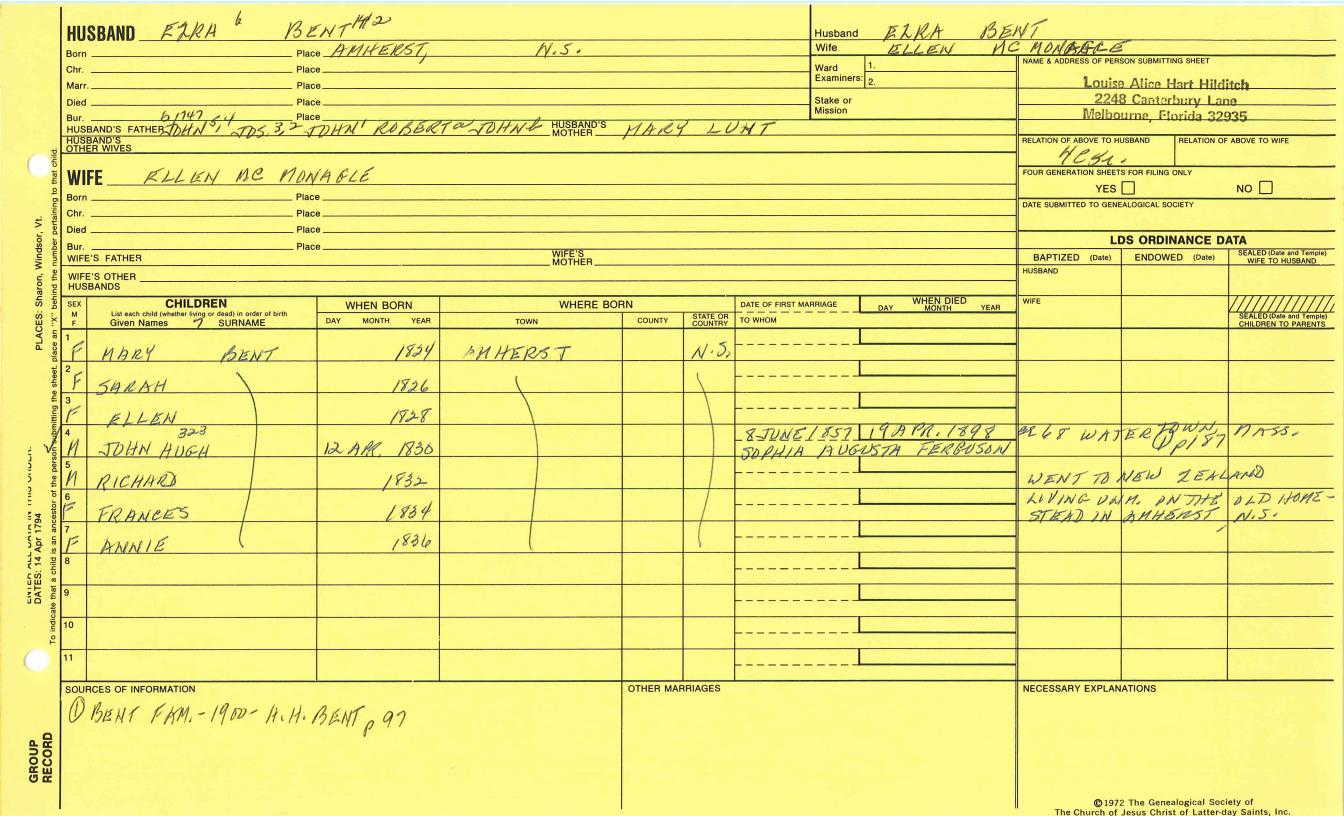 HUSBAND EZRA 6 BENT 142
Born Place AMHERST, N.S.
Chr. Place
Marr. Place
Died Place
Bur. Place
HUSBAND'S FATHER JOHN 5,4 JOS. 3,2 JOHN1 ROBERT a JOHN b HUSBAND'S MOTHER MARY LUNT
HUSBAND'S OTHER WIVES
Husband EZRA BENT
Wife ELLEN MC MONAGLE
Ward Examiners: 1.
2.
Stake or Mission
NAME & ADDRESS OF PERSON SUBMITTING SHEET
Louise Alice Hart Hilditch
2248 Canterbury Lane
Melbourne, Florida 32935
RELATION OF ABOVE TO HUSBAND RELATION OF ABOVE TO WIFE
FOUR GENERATION SHEETS FOR FILING ONLY
YES NO
DATE SUBMITTED TO GENEALOGICAL SOCIETY
WIFE ELLEN MC MONAGLE
Born Place
Chr. Place
Died Place
Bur. Place
WIFE'S FATHER WIFE'S MOTHER
WIFE'S OTHER HUSBANDS
LDS ORDINANCE DATA
BAPTIZED (Date) ENDOWED (Date) SEALED (Date and Temple) WIFE TO HUSBAND
HUSBAND
WIFE
SEALED (Date and Temple) CHILDREN TO PARENTS
SEX M F CHILDREN WHEN BORN WHERE BORN DATE OF FIRST MARRIAGE WHEN DIED
List each child (whether living or dead) in order of birth
Given Names 7 SURNAME DAY MONTH YEAR TOWN COUNTY STATE OR COUNTRY TO WHOM DAY MONTH YEAR
1 F MARY BENT 1824 AMHERST N.S.
2 F SARAH 1826
3 F ELLEN 1828
4 M JOHN HUGH 323 12 APR. 1830 8 JUNE 1857 19 APR. 1898
SOPHIA AUGUSTA FERGUSON
68 WATERTOWN, MASS.
① p187
5 M RICHARD 1832 WENT TO NEW ZEALAND
6 F FRANCES 1834 LIVING UNM. ON THE OLD HOME-
STEAD IN AMHERST, N.S.
7 F ANNIE 1836
8
9
10
11
SOURCES OF INFORMATION OTHER MARRIAGES NECESSARY EXPLANATIONS
① BENT FAM. - 1900 - A.H. BENT p 97
©1972 The Genealogical Society of
The Church of Jesus Christ of Latter-day Saints, Inc.
PLACES: Sharon, Windsor, Vt.
DATES: 14 Apr 1794
To indicate that a child is an ancestor of the person submitting the sheet, place an "X" behind the number pertaining to that child.
GROUP
RECORD